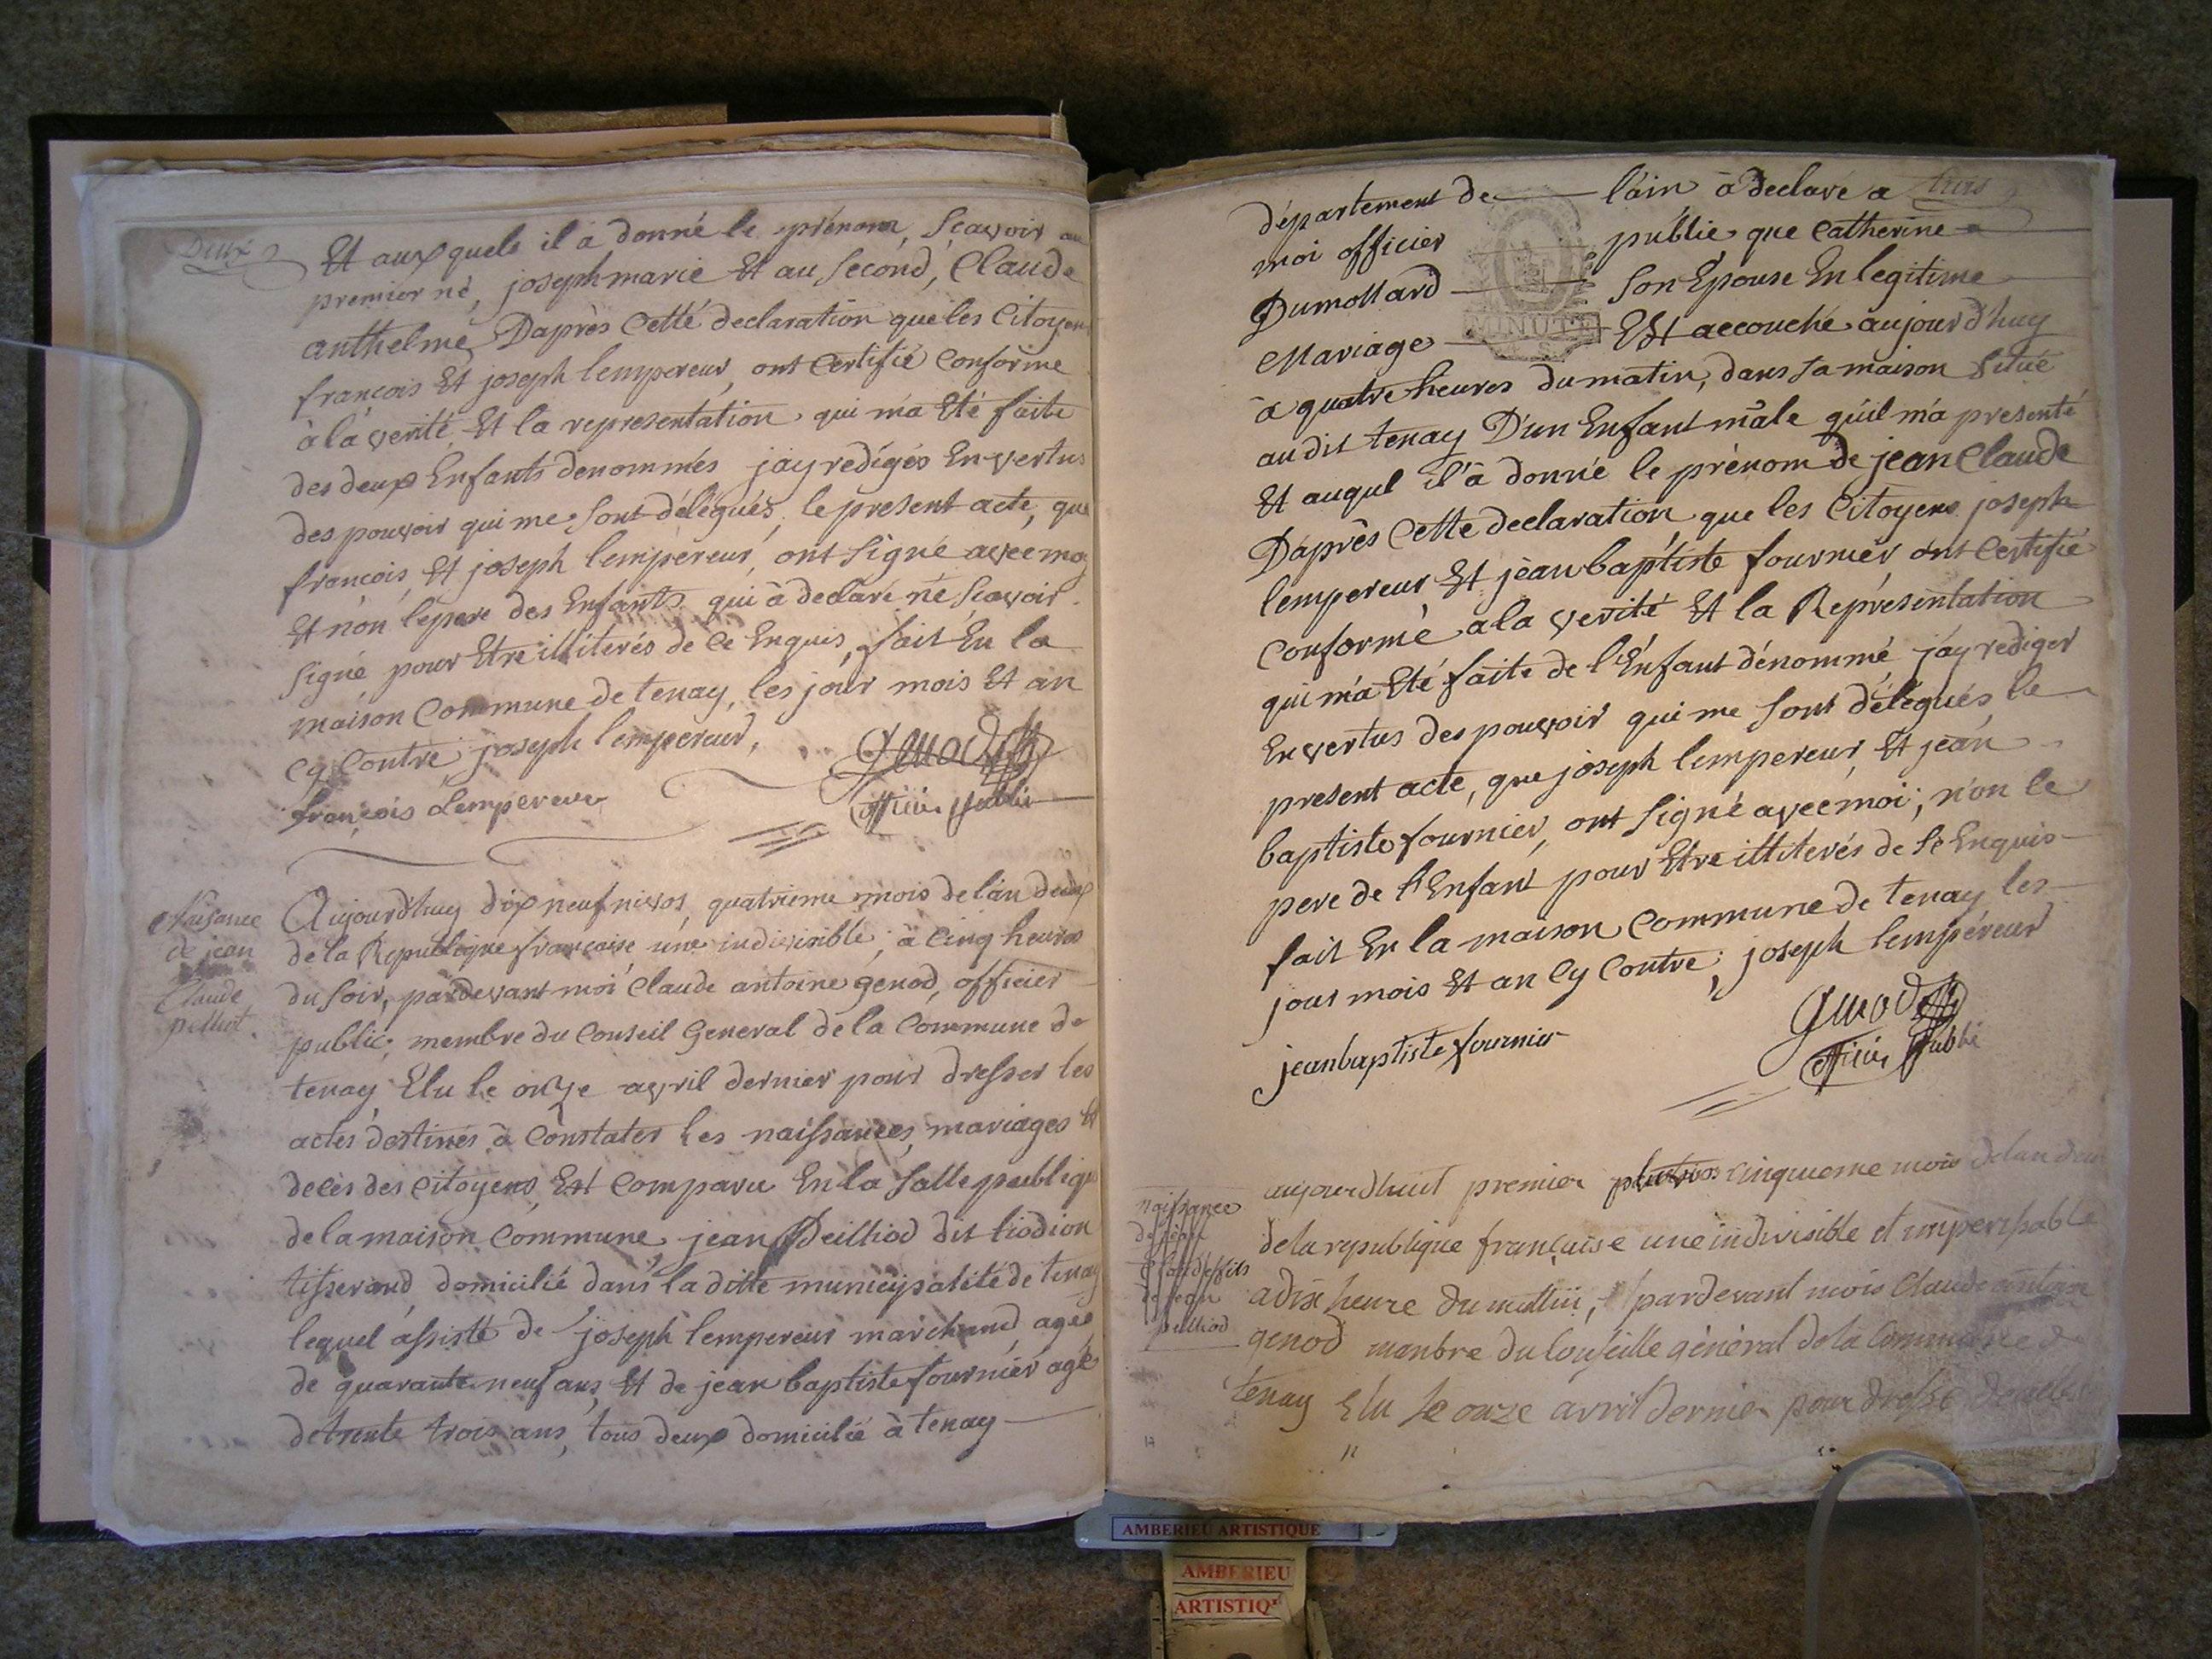 Deux
Et auxquels il a donné le prénom, Sçavoir au
premier né, joseph marie Et au Second, Claude
anthelme, Daprès Cette declaration que les Citoyens
francois Et joseph lempereur, ont Certifié Conforme
à la verité, Et la representation qui m'a Eté faite
des deux Enfants denommés jay redigés En vertus
des pouvoir qui me Sont délégués, le present acte, que
francois, Et joseph lempereur, ont Signé avec moy
Et non le pere des Enfants qui à declaré ne Scavoir
Signé pour Etre illiterés de Ce Enquis, fait En la
maison Commune de tenay, les jour mois Et an
cy Contre joseph lempereur,
françois Lempereur
Genod
officier public
Naisance
de jean
Claude
Aujourdhuy dix neuf nivos, quatrieme mois de lan deux
de la Republique francaise, une indivisible, à Cinq heures
du Soir, pardevant moi Claude antoine genod, officier
public, membre du Conseil General de la Commune de
tenay Elu le onze avril dernier pour dresser les
actes destinés à Constater les naissances, mariages Et
decès des Citoyens, Est Comparu En la Salle publique
de la maison Commune, jean Peilliod dit
tisserand, domicilié dans la ditte municipalité de tenay
lequel assisté de joseph lempereur marchand, agée
de quarante neuf ans, Et de jean baptiste fournier agé
de trente trois ans, tous deux domicilié à tenay
département de l'ain à declaré a trois
moi officier publie que Catherine
Dumollard Son Epouse En legitime
Mariage Est accouché aujourdhuy
MINUTE
à quatre heures du matin, dans Sa maison Situé
audit tenay D'un Enfant mâle quil m'a presenté
Et auqul il à donné le prénom de jean Claude
Daprès Cette declaration que les Citoyens joseph
lempereur Et jean baptiste fournier ont Certifié
Conforme a la verité Et la Représentation
qui m'a Eté faite de l'Enfant dénommé jay rediger
En vertus des pouvoir qui me Sont délégués, le
present acte, que joseph lempereur, Et jean
baptiste fournier, ont Signé avec moi, non le
pere de l'Enfant pour Etre illiterés de Ce Enquis
fait En la maison Commune de tenay les
jour mois Et an Cy Contre, joseph lempéreur
jeanbaptiste fournier
Genod
officier Publi
naissance
de jean
de jean
pelliod
aujourdhuit premier pluvios cinquieme mois delan deux
dela republique française une indivisible et imperisable
adix heure du mattin, pardevant mois Claude antoine
genod manbre du Conseille général dela Commune de
tenay Elu le onze avril dernier pour dressé
AMBERIEU ARTISTIQUE
AMBERIEU
ARTISTIQ